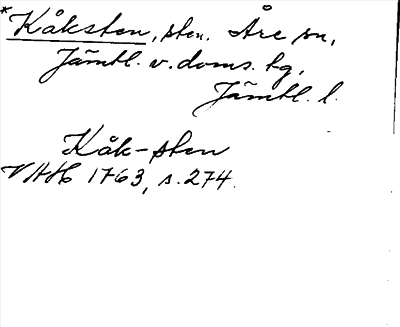 *Kåksten, sten. Åre sn,
Jämtl. v. doms. tg,
Jämtl. l.
Kåk-sten
VAH 1763, s. 274.